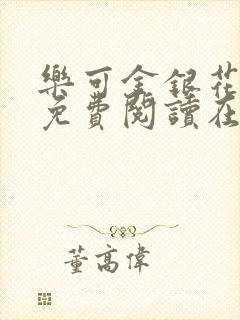 樂可金銀花
免費閱讀在
董高偉